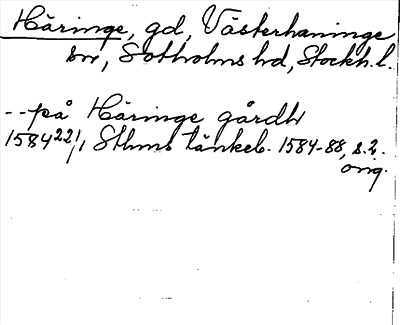 Häringe, gd, Västerhaninge
sn, Sotholms hd, Stockh. l.
--på Häringe gårdh
1584 22/1, Sthms tänkeb. 1584-88, s. 2.
orig.